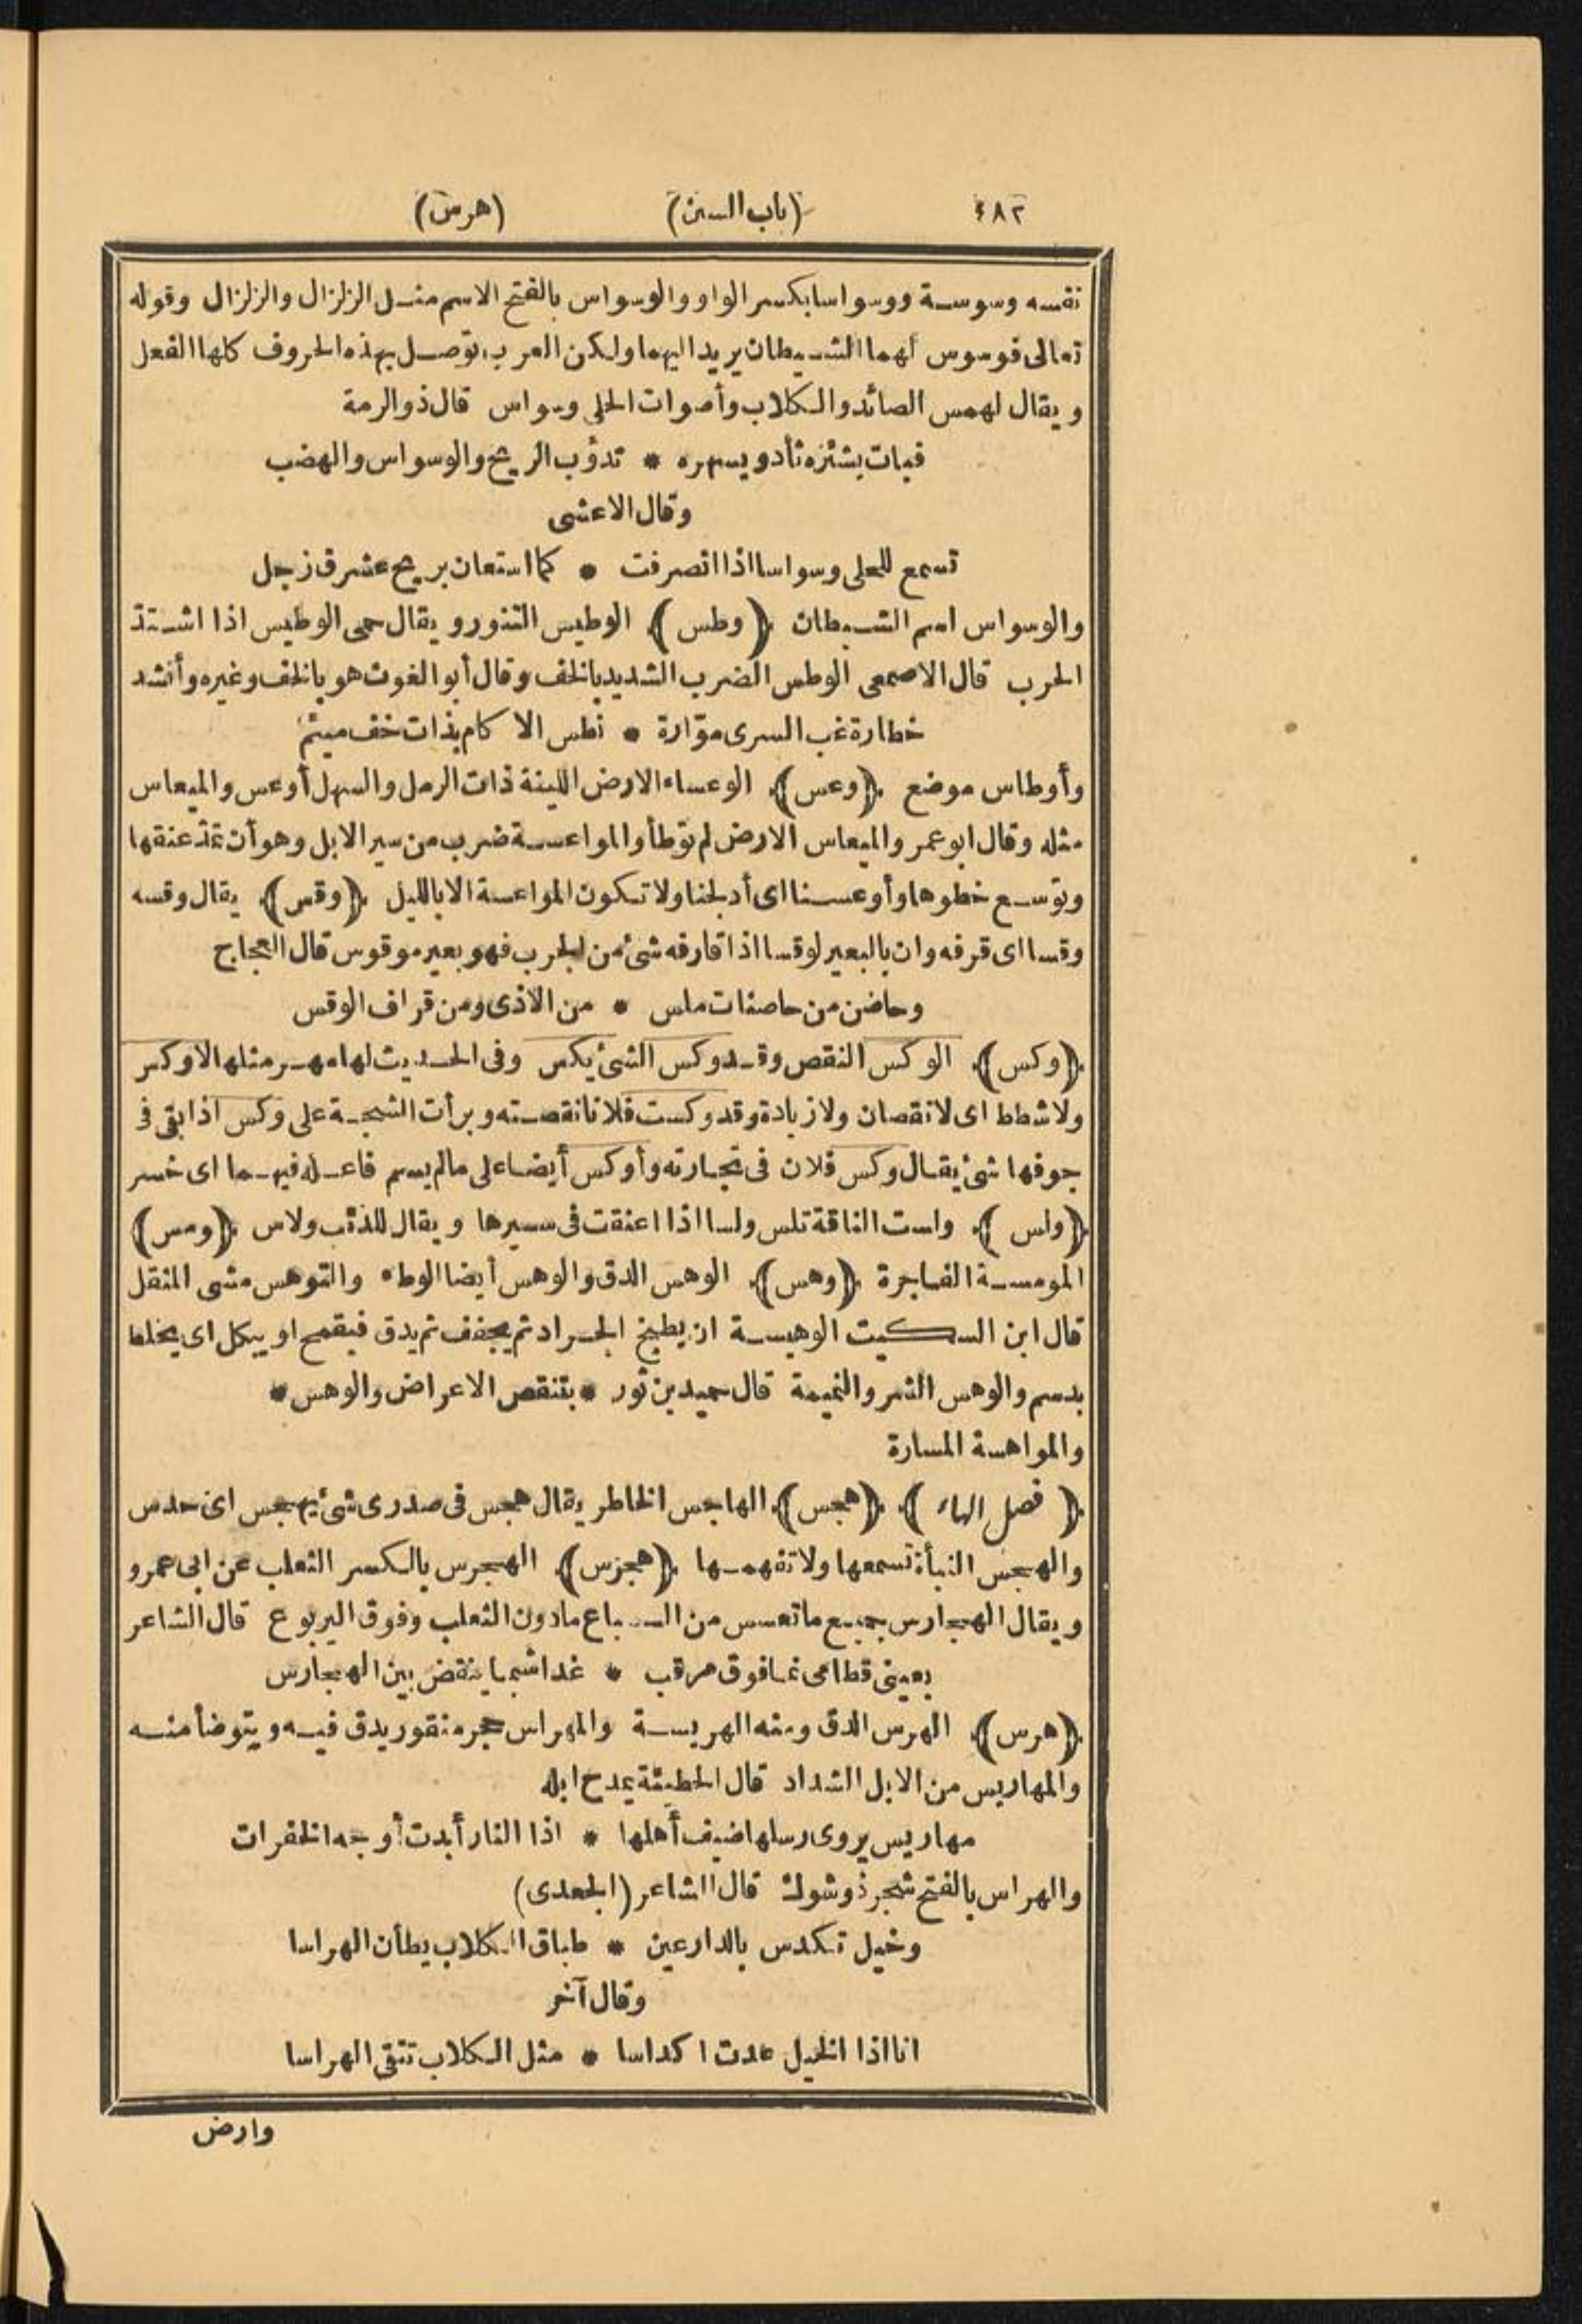 ٤٨٢ (باب السين) (هرس)
نفسه وسوسة ووسواسا بكسر الواو والوسواس بالفتح الاسم مثل الزلزال والزلزال وقوله
تعالى فوسوس لهما الشيطان يريد اليهما ولكن العرب توصل بهذه الحروف كلها الفعل
ويقال لهمس الصائد والكلاب وأصوات الحلى وسواس قال ذو الرمة
فبات يشئزه ثأد ويسهره * تدؤب الريح والوسواس والهضب
وقال الاعشى
تسمع للحلى وسواسا اذا انصرفت * كما استعان بريح عشرق زجل
والوسواس اسم الشيطان ﴿وطس﴾ الوطيس التنور ويقال حمى الوطيس اذا اشتد
الحرب قال الاصمعى الوطس الضرب الشديد بالخف وقال أبو الغوث هو بالخف وغيره وأنشد
خطارة غب السرى موّارة * تطس الاكام بذات خف ميثم
وأوطاس موضع ﴿وعس﴾ الوعساء الارض اللينة ذات الرمل والسهل أوعس والميعاس
مثله وقال ابو عمرو الميعاس الارض لم توطأ والمواعسة ضرب من سير الابل وهو أن تمد عنقها
وتوسع خطوها وأوعسنا اى أدلجنا ولا تكون المواعسة الا بالليل ﴿وقس﴾ يقال وقسه
وقسا اى قرفه وان بالبعير لوقسا اذا قارفه شئ من الجرب فهو بعير موقوس قال العجاج
وحاضن من حاصنات ملس * من الاذى ومن قراف الوقس
﴿وكس﴾ الوكس النقص وقد وكس الشئ يكس وفى الحديث لها مهر مثلها لا وكس
ولا شطط اى لا نقصان ولا زيادة وقد وكست فلانا نقصته وبرأت الشجة على وكس اذا بقى فى
جوفها شئ يقال وكس فلان فى تجارته وأوكس أيضا على مالم يسم فاعله فيهما اى خسر
﴿ولس﴾ ولست الناقة تلس ولسا اذا اعنقت فى سيرها ويقال للذئب ولاس ﴿ومس﴾
المومسة الفاجرة ﴿وهس﴾ الوهس الدق والوهس أيضا الوطء والتوهس مشى المثقل
قال ابن السكيت الوهيسة ان يطبخ الجراد ثم يجفف ثم يدق فيقمح او يبكل اى يخلط
بدسم والوهس الشر والنميمة قال حميد بن ثور * بتنقص الاعراض والوهس *
والمواهسة المسارة
﴿فصل الهاء﴾ ﴿هجس﴾ الهاجس الخاطر يقال هجس فى صدرى شئ يهجس اى حدس
والهجس النبأة تسمعها ولا تفهمها ﴿هجرس﴾ الهجرس بالكسر الثعلب عن ابى عمرو
ويقال الهجارس جميع ما تعسس من السباع مادون الثعلب وفوق اليربوع قال الشاعر
بعينى قطامى نما فوق مرقب * غدا شبما ينقض بين الهجارس
﴿هرس﴾ الهرس الدق ومنه الهريسة والمهراس حجر منقور يدق فيه ويتوضأ منه
والمهاريس من الابل الشداد قال الحطيئة يمدح ابله
مهاريس يروى رسلها ضيف أهلها * اذا النار أبدت أوجه الخفرات
والهراس بالفتح شجر ذو شوك قال الشاعر (الجعدى)
وخيل تكدس بالدارعين * طباق الكلاب يطأن الهراسا
وقال آخر
انا اذا الخيل عدت اكداسا * مثل الكلاب تتقى الهراسا
وارض